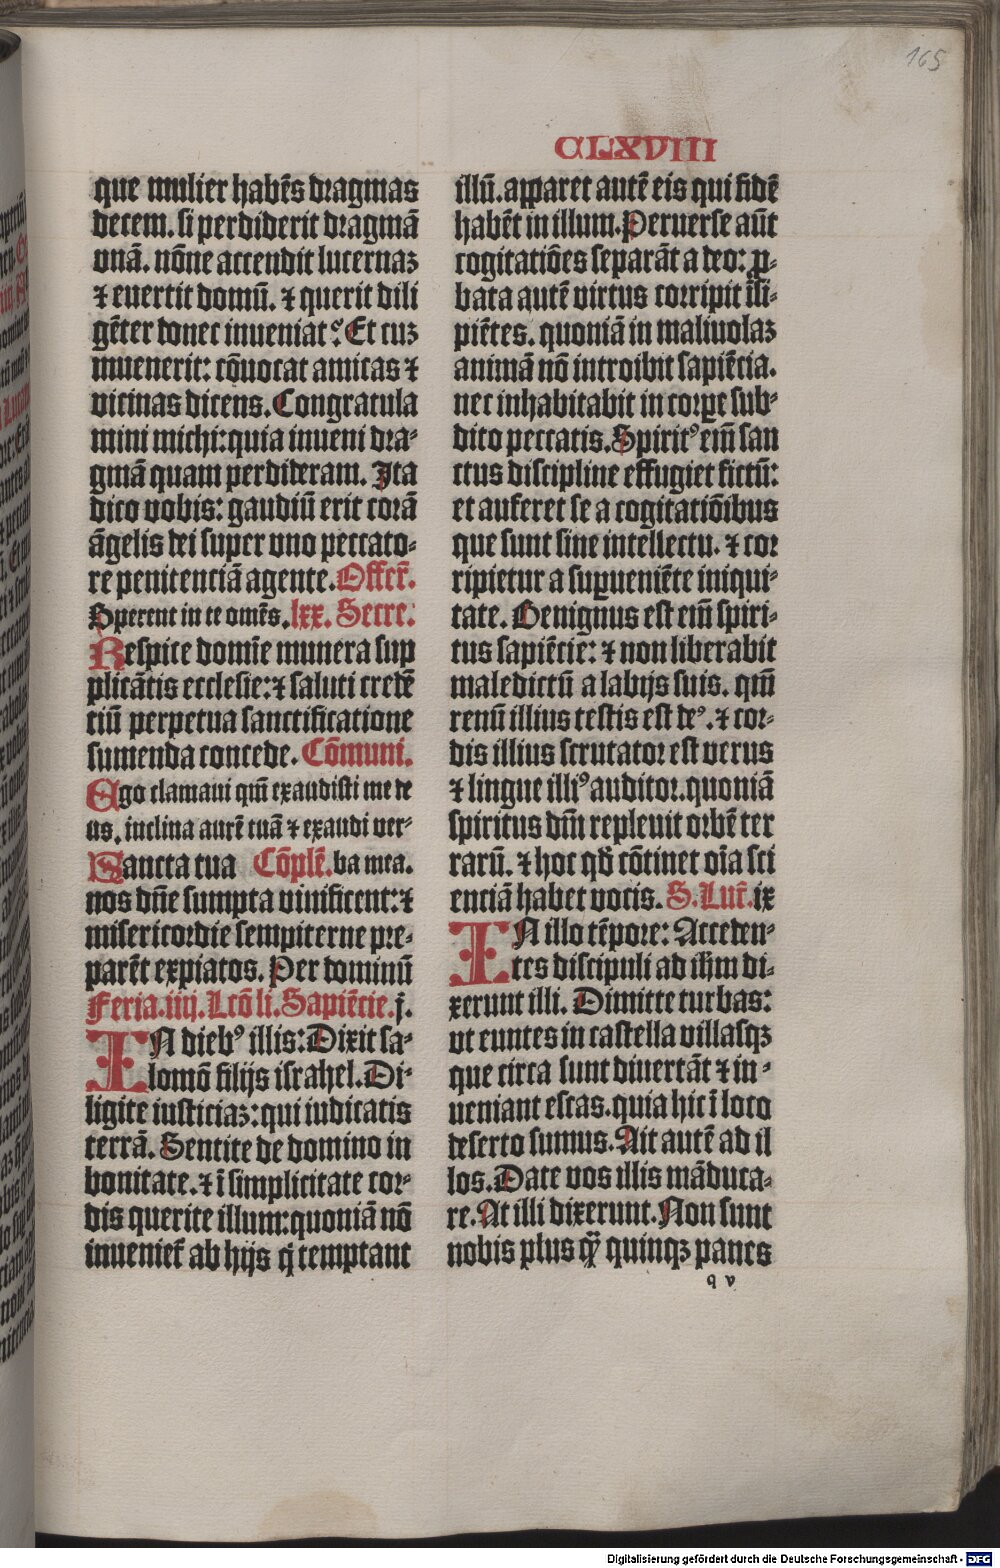 165
CLXVIII
que mulier habēs dragmas
decem. si perdiderit dragmā
vnā. nōne accendit lucernaz
⁊ euertit domū. ⁊ querit dili
gēter donec inueniat? Et cuz
inuenerit: cōuocat amicas ⁊
vicinas dicens. Congratula
mini michi: quia inueni dra-
gmā quam perdideram. Ita
dico vobis: gaudiū erit corā
āgelis dei super vno peccato-
re penitenciā agente. Offer̄.
Sperent in te omēs. lxx. Secre:
Respice domīe munera sup
plicātis ecclesie: ⁊ saluti credē
tiū perpetua sanctificatione
sumenda concede. Cōmuni.
Ego clamaui qm̄ exaudisti me de
us. inclina aurē tuā ⁊ exaudi ver-
Sancta tua Cōplē. ba mea.
nos dn̄e sumpta viuificent: ⁊
misericordie sempiterne pre-
parēt expiatos. Per dominū
Feria. iiij. Lcō li. Sapiēcie. j.
IN diebꝰ illis: Dixit sa-
lomō filijs israhel. Di-
ligite iusticiaz: qui iudicatis
terrā. Sentite de domino in
bonitate. ⁊ ī simplicitate cor-
dis querite illum: quoniā nō
inueniet̄ ab hijs q̇ temptant
illū. apparet autē eis qui fidē
habēt in illum. Peruerse aūt
cogitatiōes separāt a deo: ꝓ-
bata autē virtus corripit īsi-
piētes. quoniā in maliuolaz
animā nō introibit sapiētia.
nec inhabitabit in corꝑe sub-
dito peccatis. Spiritꝰ eim̄ san
ctus discipline effugiet fictū:
et auferet se a cogitatiōibus
que sunt sine intellectu. ⁊ cor
ripietur a suꝑueniēte iniqui-
tate. Benignus est eim̄ spiri-
tus sapiēcie: ⁊ non liberabit
maledictū a labijs suis. qm̄
renū illius testis est deꝰ. ⁊ cor-
dis illius scrutator est verus
⁊ lingue illiꝰ auditor. quoniā
spiritus dm̄ repleuit orbē ter
rarū. ⁊ hoc qd̄ cōtinet oīa sci
enciā habet vocis. S. Luc̄. ix
IN illo tēpore: Acceden-
tes discipuli ad ihm̄ di-
xerunt illi. Dimitte turbas:
vt euntes in castella villasqz
que circa sunt diuertāt ⁊ in-
ueniant escas. quia hic ī loco
deserto sumus. Ait autē ad il
los. Date vos illis māduca-
re. At illi dixerunt. Non sunt
nobis plus qͣ̄ quinqz panes
q v
Digitalisierung gefördert durch die Deutsche Forschungsgemeinschaft - DFG